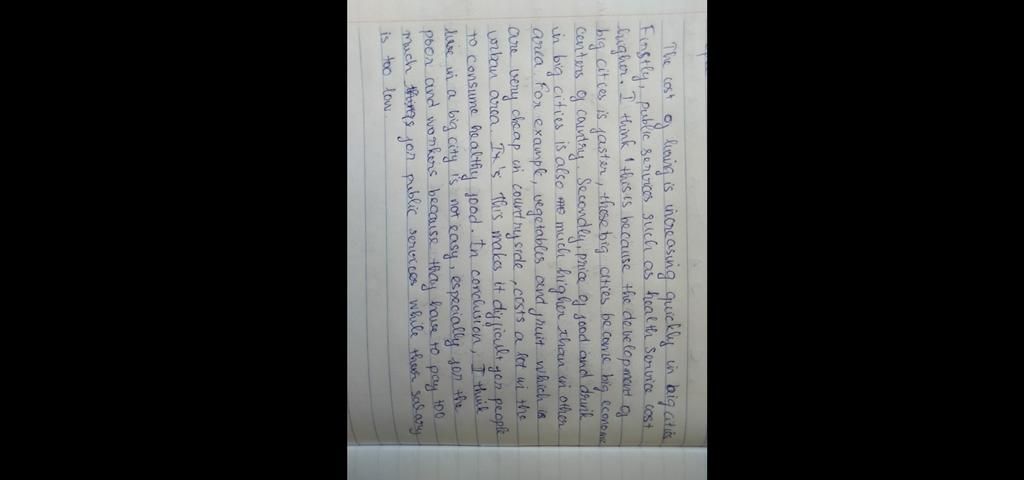 The cost of living is increasing quickly in big cities.
Firstly, public services such as health service cost
higher. I think this is because the development of
big cities is faster, those big cities become big economic
centers of country. Secondly, price of food and drink
in big cities is also much higher than in other
area. For example, vegetables and fruit which is
are very cheap in countryside, costs a lot in the
urban area. It's This makes it difficult for people
to consume healthy food. In conclusion, I think
live in a big city is not easy, especially for the
poor and workers because they have to pay too
much things for public services while their salary
is too low.